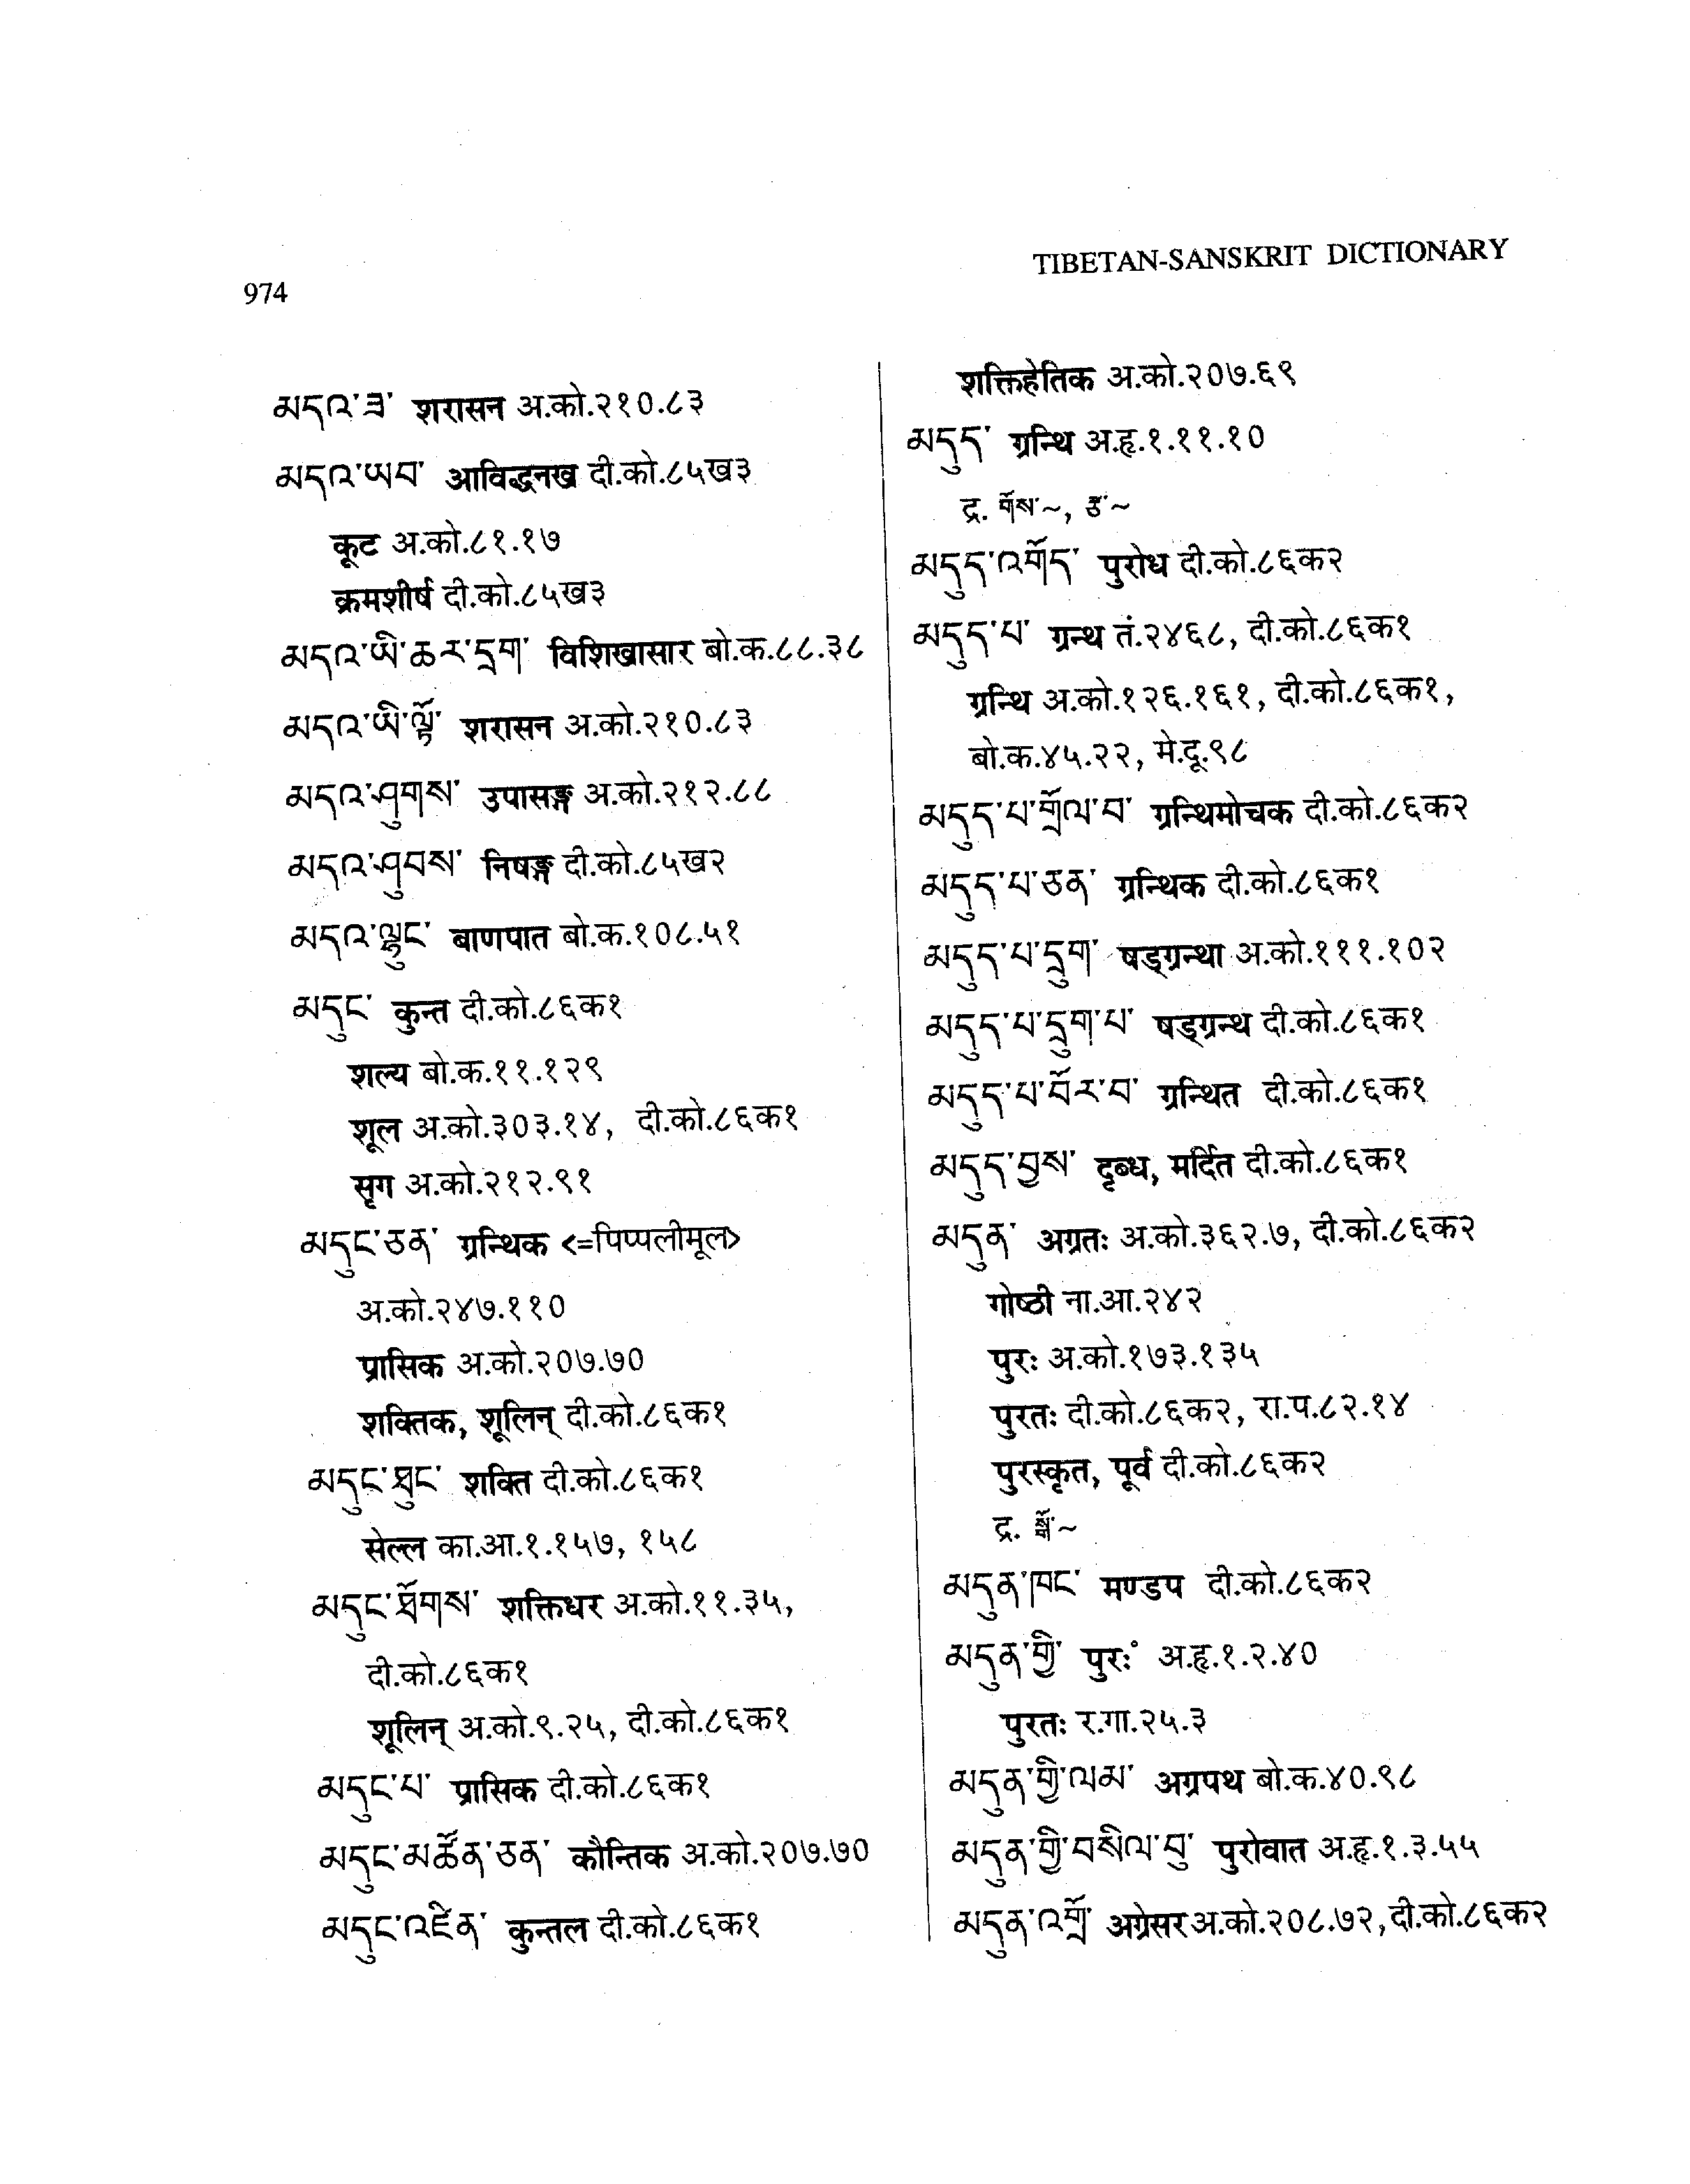 974
TIBETAN-SANSKRIT DICTIONARY
མདའ་ཟ་ शरासन अ.को.२१०.८३
མདའ་ཡབ་ आविद्धनख दी.को.८५ख३
कूट अ.को.८१.१७
क्रमशीर्ष दी.को.८५ख३
མདའ་ཡི་ཆར་དྲག་ विशिखासार बो.क.८८.३८
མདའ་ཡི་ལྟོ་ शरासन अ.को.२१०.८३
མདའ་ཤུགས་ उपासङ्ग अ.को.२१२.८८
མདའ་ཤུབས་ निषङ्ग दी.को.८५ख२
མདའ་ལྷུང་ बाणपात बो.क.१०८.५१
མདུང་ कुन्त दी.को.८६क१
शल्य बो.क.११.१२९
शूल अ.को.३०३.१४, दी.को.८६क१
सृग अ.को.२१२.९१
མདུང་ཅན་ ग्रन्थिक <=पिप्पलीमूल>
अ.को.२४७.११०
प्रासिक अ.को.२०७.७०
शक्तिक, शूलिन् दी.को.८६क१
མདུང་ཐུང་ शक्ति दी.को.८६क१
सेल्ल का.आ.१.१५७, १५८
མདུང་ཐོགས་ शक्तिधर अ.को.११.३५,
दी.को.८६क१
शूलिन् अ.को.९.२५, दी.को.८६क१
མདུང་པ་ प्रासिक दी.को.८६क१
མདུང་མཚོན་ཅན་ कौन्तिक अ.को.२०७.७०
མདུང་འཛིན་ कुन्तल दी.को.८६क१
शक्तिहेतिक अ.को.२०७.६९
མདུད་ ग्रन्थि अ.हृ.१.११.१०
द्र. གོས་~, ཙ་~
མདུད་འགོད་ पुरोध दी.को.८६क२
མདུད་པ་ ग्रन्थ तं.२४६८, दी.को.८६क१
ग्रन्थि अ.को.१२६.१६१, दी.को.८६क१,
बो.क.४५.२२, मे.दू.९८
མདུད་པ་གྲོལ་བ་ ग्रन्थिमोचक दी.को.८६क२
མདུད་པ་ཅན་ ग्रन्थिक दी.को.८६क१
མདུད་པ་དྲུག་ षड्ग्रन्था अ.को.१११.१०२
མདུད་པ་དྲུག་པ་ षड्ग्रन्थ दी.को.८६क१
མདུད་པ་བོར་བ་ ग्रन्थित दी.को.८६क१
མདུད་བྱས་ दृब्ध, मर्दित दी.को.८६क१
མདུན་ अग्रतः अ.को.३६२.७, दी.को.८६क२
गोष्ठी ना.आ.२४२
पुरः अ.को.१७३.१३५
पुरतः दी.को.८६क२, रा.प.८२.१४
पुरस्कृत, पूर्व दी.को.८६क२
द्र. ~
མདུན་ཁང་ मण्डप दी.को.८६क२
མདུན་གྱི་ पुरः॰ अ.हृ.१.२.४०
पुरतः र.गा.२५.३
མདུན་གྱི་ལམ་ अग्रपथ बो.क.४०.९८
མདུན་གྱི་བསིལ་བུ་ पुरोवात अ.हृ.१.३.५५
མདུན་འགྲོ་ अग्रेसर अ.को.२०८.७२, दी.को.८६क२